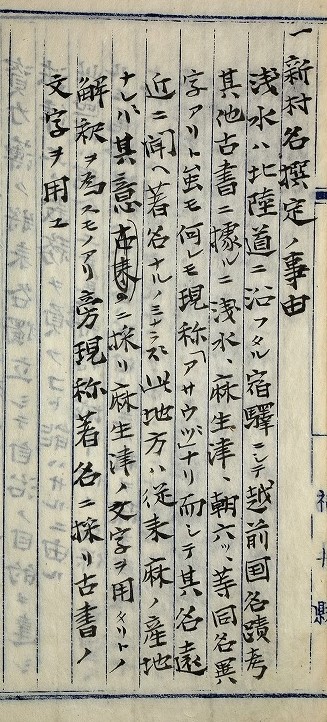 一新村名撰定ノ事由
浅水ハ北陸道ニ沿フタル宿驛ニシテ越前国名蹟考
其他古書ニ據ルニ浅水、麻生津、朝六ッ、等同名異
字アリト虽モ何レモ現称「アサウヅ」ナリ而シテ其名遠
近ニ聞ヘ著名ナルノミナラズ此地方ハ従来麻ノ産地
ナレバ其意古来ノニ採リ麻生津ノ文字ヲ用タリトノ
解釈ヲ為スモノアリ旁現称著名ニ採リ古書ノ
文字ヲ用ユ
福井縣